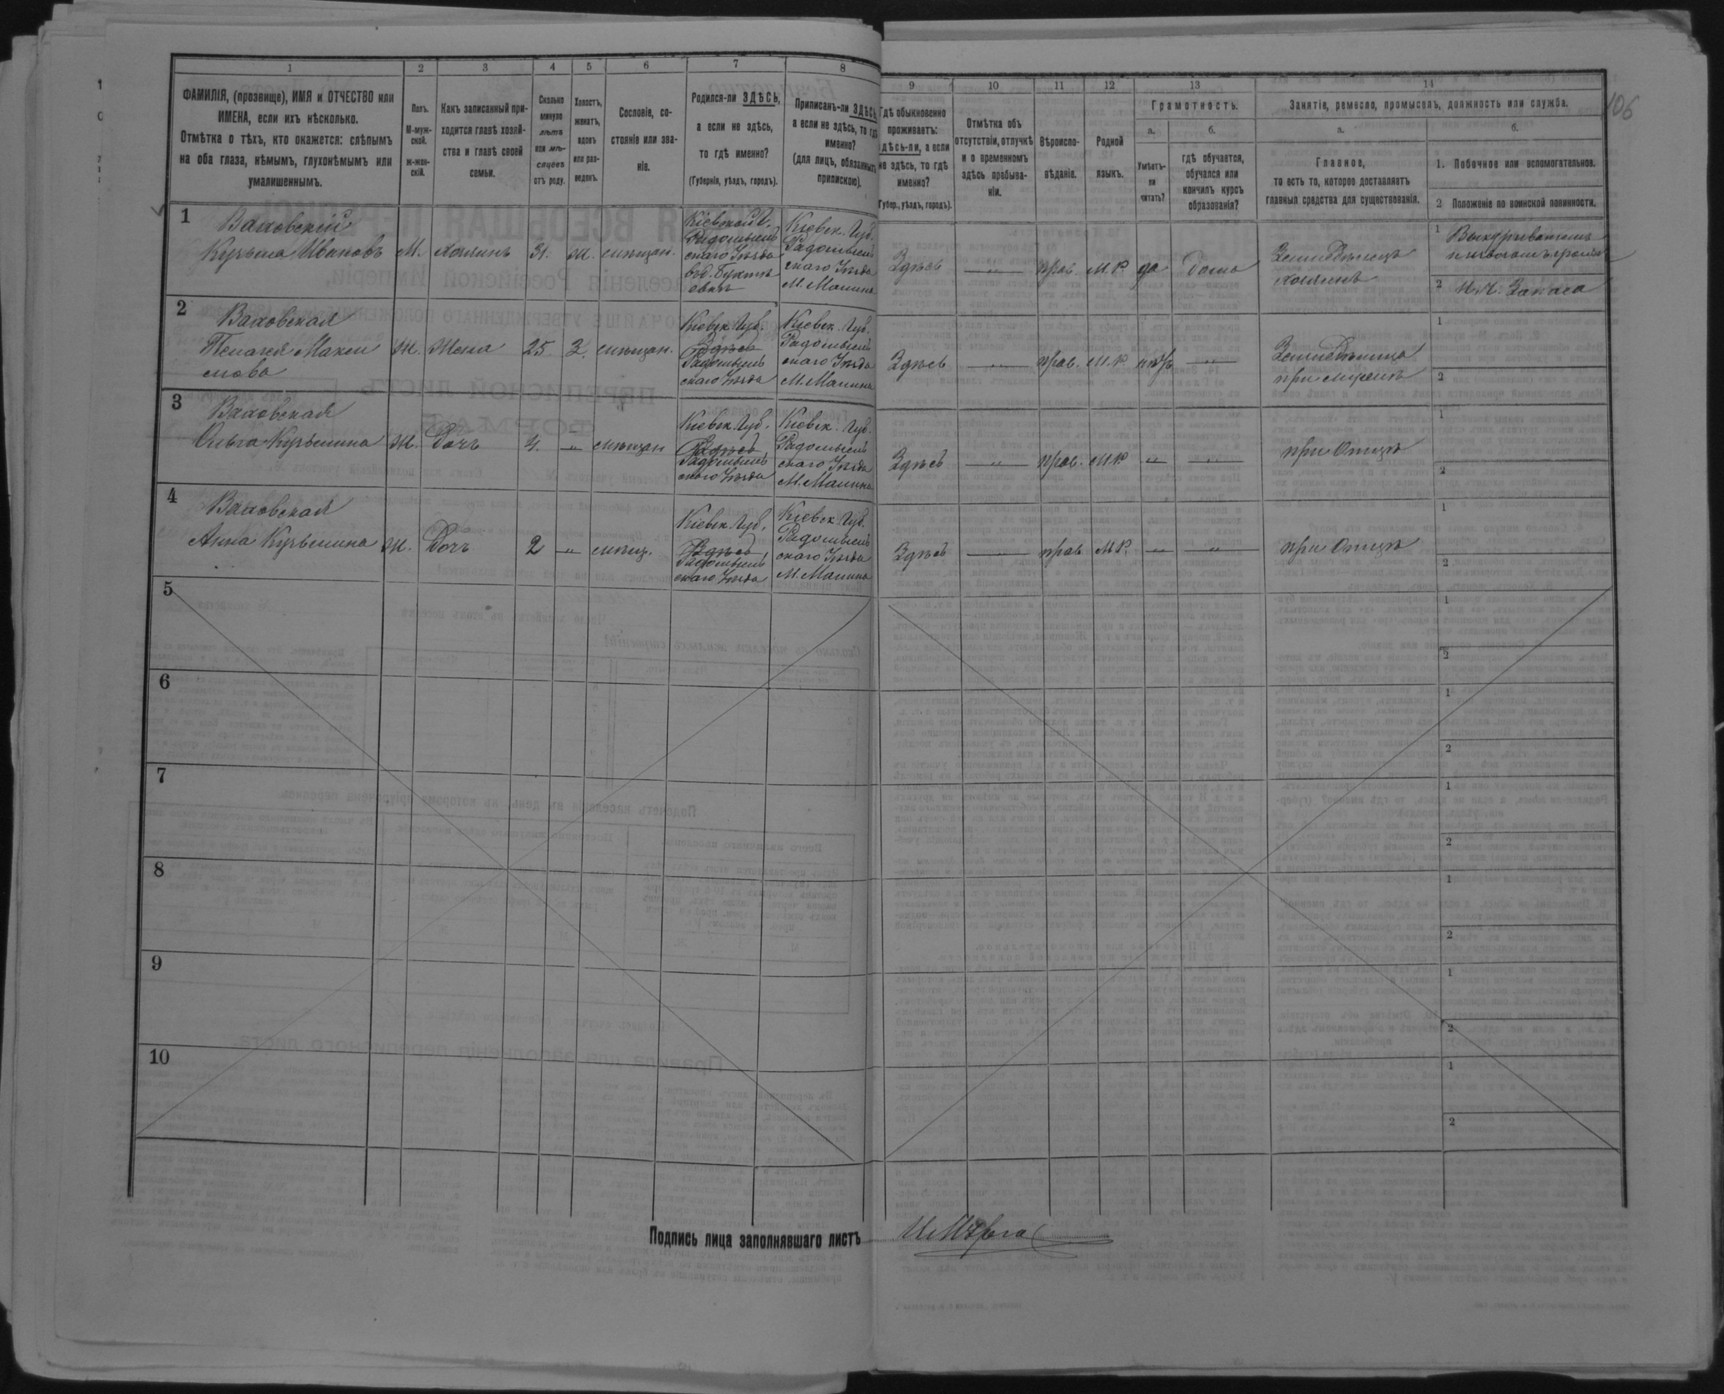 1 2 3 4 5 6 7 8 9 10 11 12 13 14
ФАМИЛІЯ, (прозвище), ИМЯ и ОТЧЕСТВО или
ИМЕНА, если ихъ нѣсколько.
Отмѣтка о тѣхъ, кто окажется: слѣпымъ
на оба глаза, нѣмымъ, глухонѣмымъ или
умалишеннымъ.
Полъ.
М-муж-
ской.
ж-жен-
скій.
Какъ записанный при-
ходится главѣ хозяй-
ства и главѣ своей
семьи.
Сколько
минуло
лѣтъ
или мѣ-
сяцевъ
отъ роду.
Холостъ,
женатъ,
вдовъ
или раз-
веденъ.
Сословіе, со-
стояніе или зва-
ніе.
Родился-ли ЗДѢСЬ,
а если не здѣсь,
то гдѣ именно?
(Губернія, уѣздъ, городъ).
Приписанъ-ли ЗДѢСЬ,
а если не здѣсь, то гдѣ
именно?
(для лицъ, обязанныхъ
припискою).
Гдѣ обыкновенно
проживаетъ:
здѣсь-ли, а если
не здѣсь, то гдѣ
именно?
(Губер., уѣздъ, городъ).
Отмѣтка объ
отсутствіи, отлучкѣ
и о временномъ
здѣсь пребыва-
ніи.
Вѣроиспо-
вѣданіе.
Родной
языкъ.
Грамотность.
а.
Умѣетъ-
ли
читать?
б.
гдѣ обучается,
обучался или
кончилъ курсъ
образованія?
Занятіе, ремесло, промыселъ, должность или служба.
а.
Главное,
то есть то, которое доставляетъ
главныя средства для существованія.
б.
1. Побочное или вспомогательное.
2 Положеніе по воинской повинности.
106
1
Ваховскій
Кузьма Ивановъ М. хозяинъ 31. ж. мѣщан.
Кіевской Г.
Радомысль
скаго Уѣзда
Кіевск. Губ.
Радомысль
скаго Уѣзда
М. Малина
Здѣсь — " — прав. М.Р. да дома
Земледѣлецъ
хозяинъ
1
2 Запаса
2
Ваховская
Пелагея Макси
мова
ж. жена 25 З. мѣщан.
Кіевск. Губ.
Здѣсь
Радомысль
скаго Уѣзда
Кіевск. Губ.
Радомысль
скаго Уѣзда
М. Малина
Здѣсь — " — прав. М.Р. нѣтъ — " —
Земледѣлица
при мужѣ
1
2
3
Ваховская
Ольга Кузьмина ж. Дочь 4. — " — мѣщан
Кіевск. Губ.
Здѣсь,
Радомысль
скаго Уѣзда
Кіевск. Губ.
Радомысль
скаго Уѣзда
М. Малина
Здѣсь — " — прав. М.Р. — " — — " —
при Отцѣ
1
2
4
Ваховская
Анна Кузьмина ж. Дочь 2 — " — мѣщ.
Кіевск. Губ.
Здѣсь,
Радомысль
скаго Уѣзда
Кіевск. Губ.
Радомысль
скаго Уѣзда
М. Малина
Здѣсь — " — прав М.Р. — " — — " —
при Отцѣ
1
2
5
1
2
6
1
2
7
1
2
8
1
2
9
1
2
10
1
2
Подпись лица заполнявшаго листъ